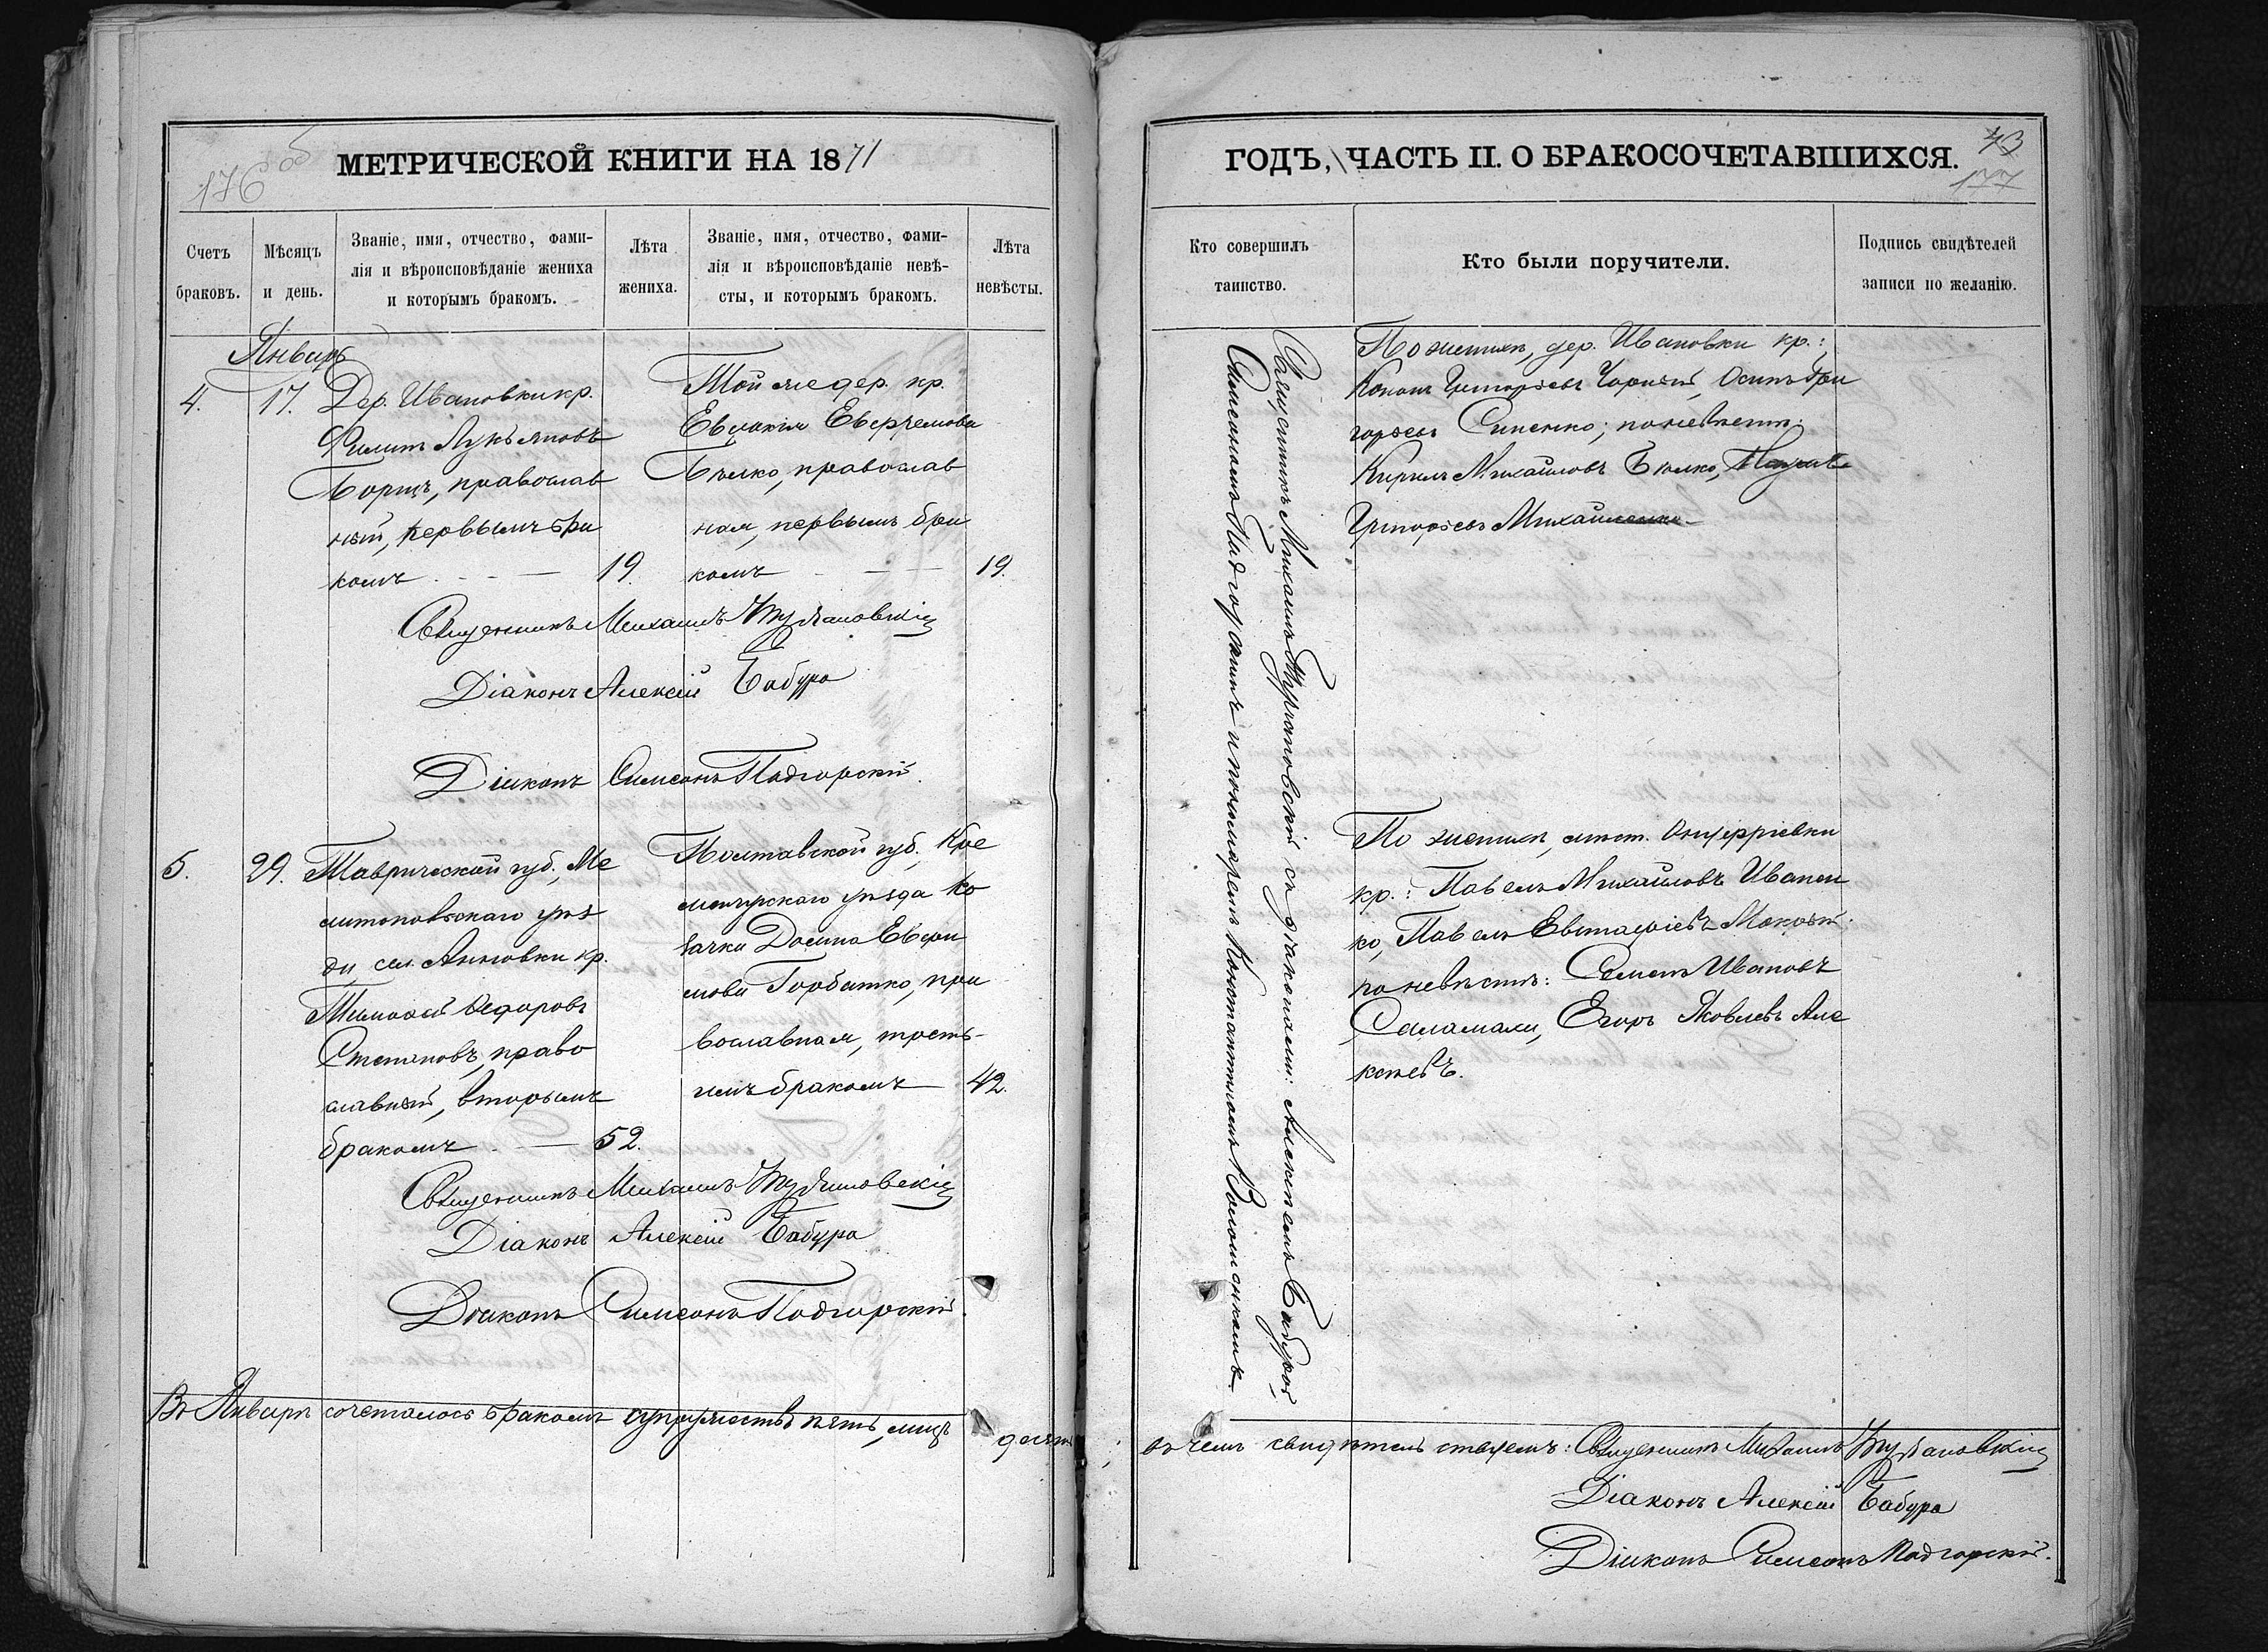 176 об
МЕТРИЧЕСКОЙ КНИГИ НА 1871
Счетъ
браковъ.
Мѣсяцъ
и день.
Званіе, имя, отчество, фами-
лія и вѣроисповѣданіе жениха
и которымъ бракомъ.
Лѣта
жениха.
Званіе, имя, отчество, фами-
лія и вѣроисповѣданіе невѣ-
сты, и которымъ бракомъ.
Лѣта
невѣсты.
Январь
4.
17.
Дер. Ивановки кр.
Филипъ Лукьяновъ
Борщъ, православ
ный, первымъ бра
комъ - - — 19.
Той же дер. кр.
Евдокія
Бѣлко, православ
ная, первымъ бра
комъ - — — 19.
Священникъ Михаилъ
Діаконъ Алексій Бабура
Діаконъ Симеонъ Подгорскій.
5.
29.
Таврической губ., Ме
литопольскаго уѣз
да, сел. Анновки кр.
Тимофей Федоровъ
Степановъ, право
славный, вторымъ
бракомъ - — 52.
Полтавской губ., Кре
менчугскаго уѣзда ко
зачка Домна Евфи
мова Горбатко, пра
вославная, треть-
имъ бракомъ — 42.
Священникъ Михаилъ
Діаконъ Алексій Бабура
Діаконъ Симеонъ Подгорскій.
Въ Январѣ сочеталось бракомъ супружествъ пять, лицъ
десять
ГОДЪ, ЧАСТЬ II. О БРАКОСОЧЕТАВШИХСЯ.
43
177
Кто совершилъ
таинство.
Кто были поручители.
Подпись свидѣтелей
записи по желанію.
Священникъ Михаилъ съ діаконами: Алексѣемъ Бабурой,
Симеономъ Подгорскимъ и пономаремъ Константиномъ
По женихѣ, дер. Ивановки кр.:
Кононъ Григорьевъ Чорный, Осипъ Гри
горьевъ Синенко; по невѣстѣ:
Кирилъ Михайловъ Бѣлко,
Григорьевъ Михайленко
По женихѣ, мѣст. Онуфріевки
кр.: Павелъ Михайловъ Иванен
ко, Павелъ Евстафіевъ
по невѣстѣ: Семенъ Ивановъ
Саламаха, Егоръ Яковлевъ Але
ксѣевъ.
; въ чемъ свидѣтельствуемъ: Священникъ Михаилъ
Діаконъ Алексій Бабура
Діаконъ Симеонъ Подгорскій.